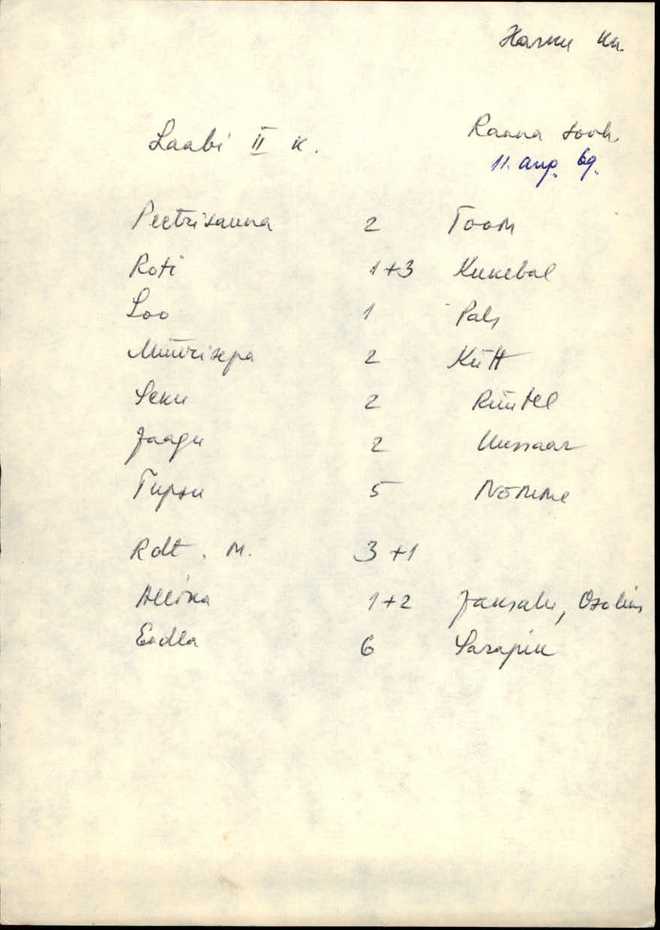 Harku kn.
Laabi II k.
Ranna sovh.
11. aug. 69.
Peetrisauna 2 Toom
Roti 1+3 Kukebal
Loo 1 Pals
Müürisepa 2 Kütt
Seku 2 Rüütel
Jaagu 2 Uussaar
Tupsu 5 Nõmme
Rdt. M. 3+1
Allika 1+2 Osolin
Eedla 6 Sarapik